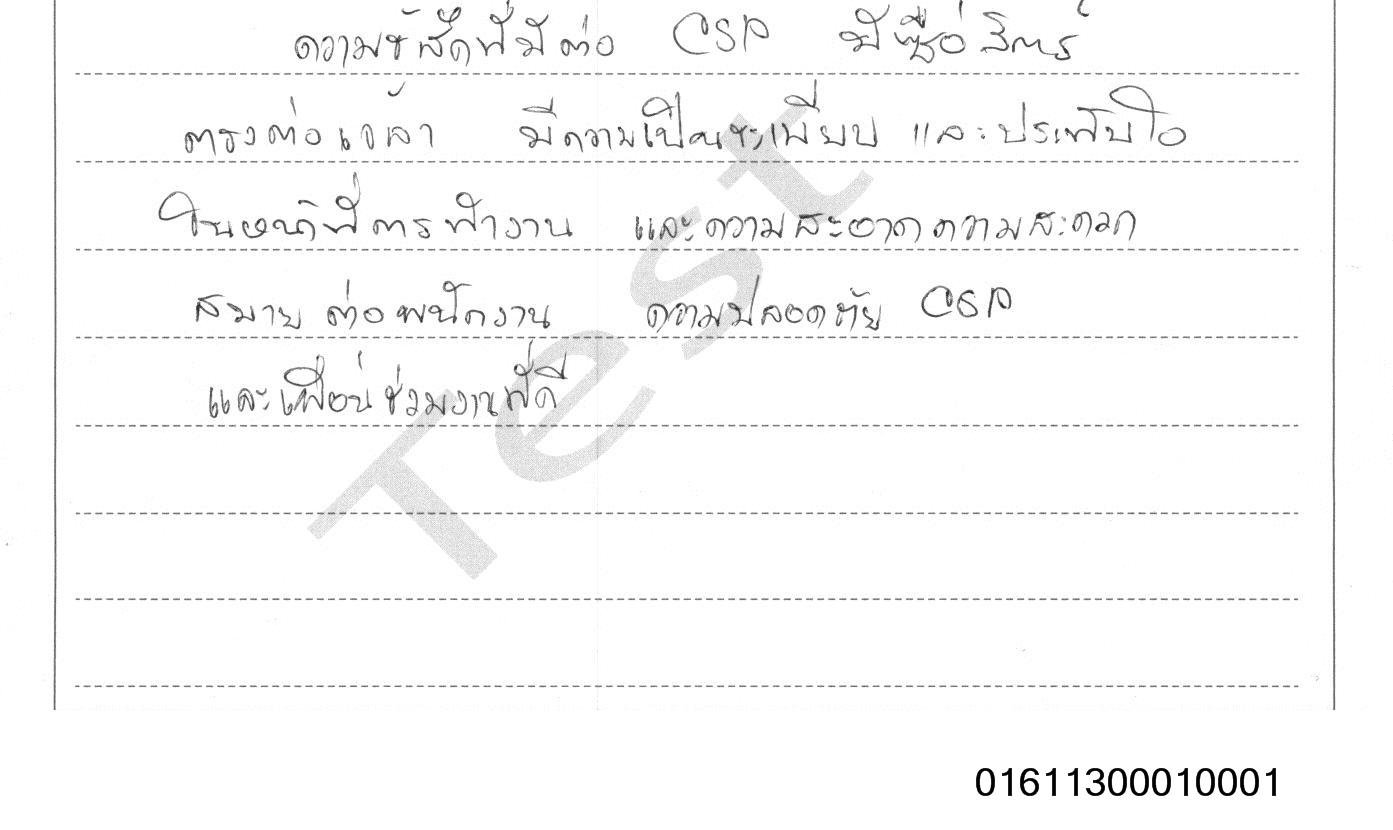 ความรู้สึกที่มีต่อ CSP มีชื่อสิทร์
ตรงต่อเวล้า มีความเป็นระเบียบ และประทับใจ
ในหน้าที่การทำงาน และความสะอาด ความสะดวก
สบาย ต่อพนักงาน ความปลอดภัย CSP
และเพื่อนร่วมงานที่ดี
Test
01611300010001